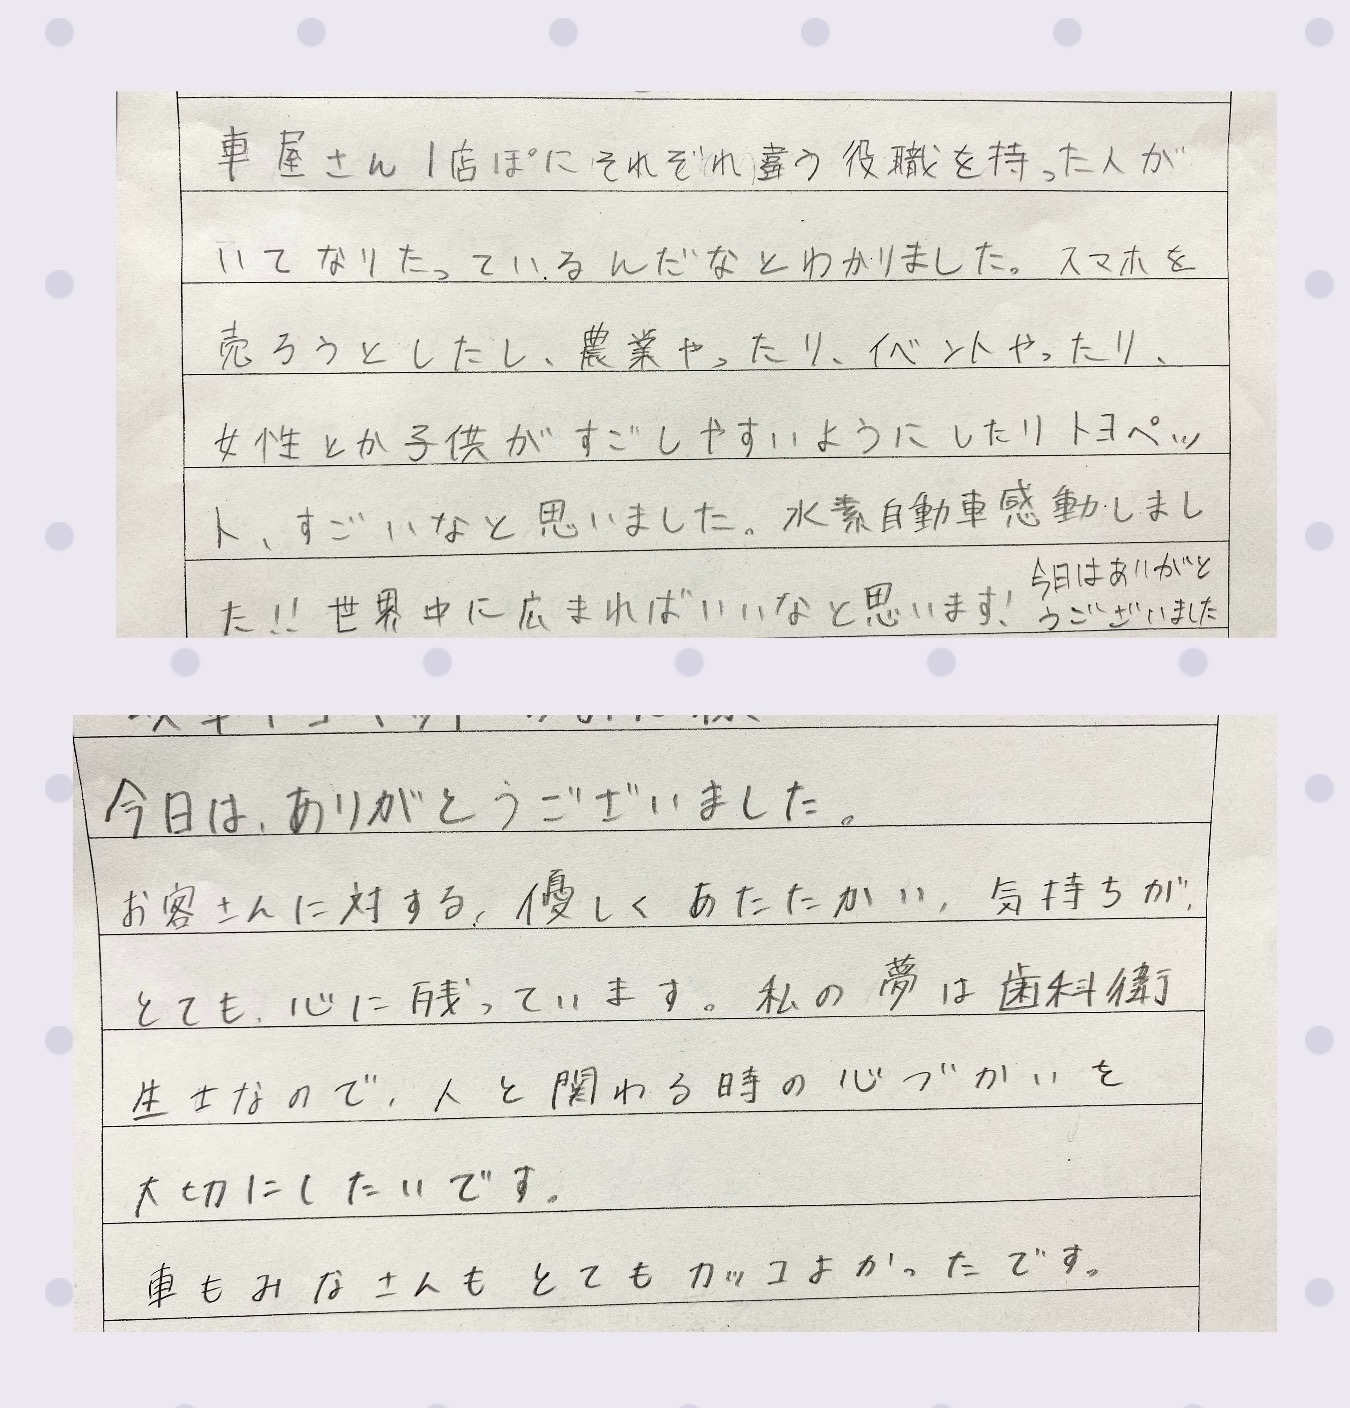 車屋さん1店ぽにそれぞれ違う役職を持った人が
いてなりたっているんだなとわかりました。スマホを
売ろうとしたし、農業やったり、イベントやったり、
女性とか子供がすごしやすいようにしたりトヨペッ
ト、すごいなと思いました。水素自動車感動しまし
た!!世界中に広まればいいなと思います!
今日はありがと
うございました
今日は、ありがとうございました。
お客さんに対する、優しくあたたかい、気持ちが、
とても、心に残っています。私の夢は歯科衛
生士なので、人と関わる時の心づかいを
大切にしたいです。
車もみなさんもとてもカッコよかったです。